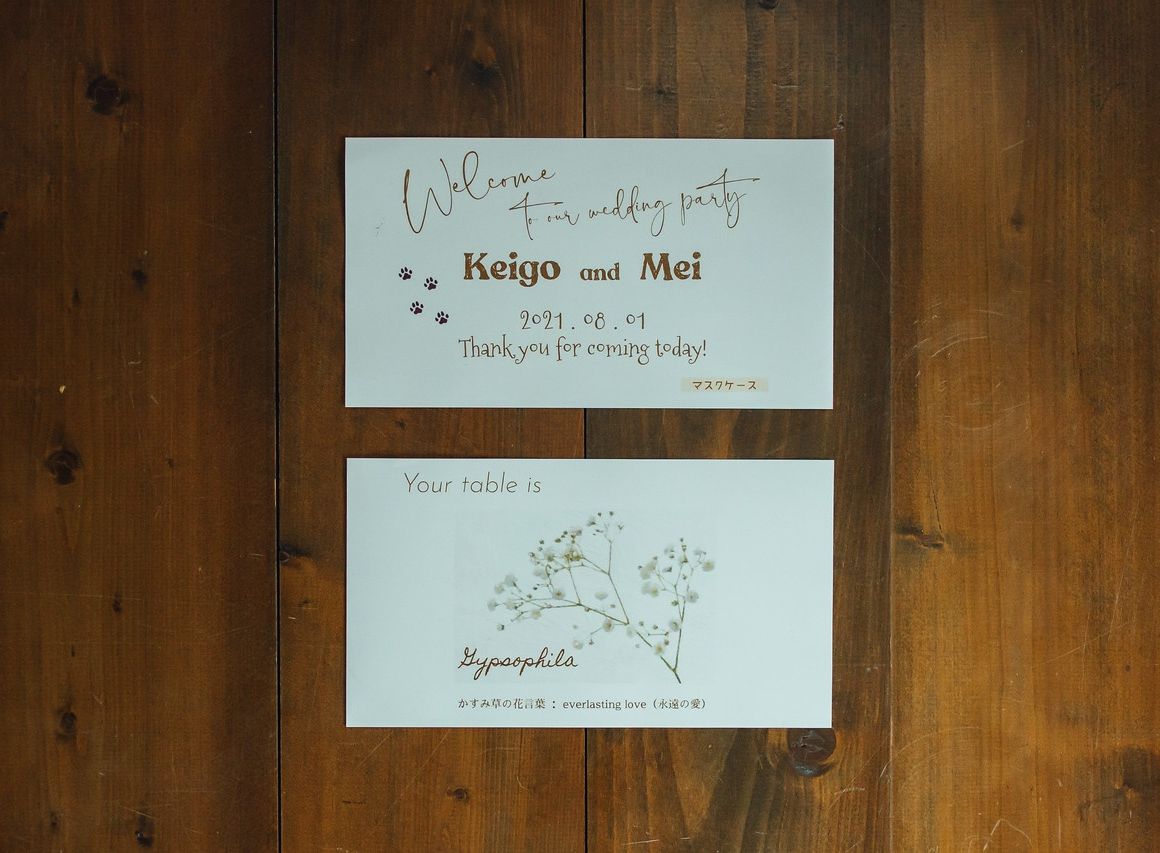 Welcome
to our wedding party
Keigo and Mei
2021.08.01
Thank you for coming today!
マスクケース
Your table is
Gypsophila
かすみ草の花言葉 : everlasting love（永遠の愛）